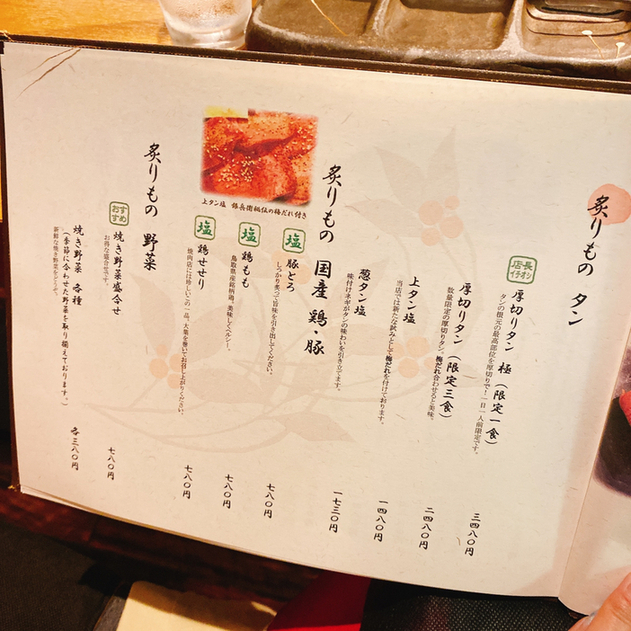 炙りもの タン
店長イチオシ
厚切りタン 極(限定一食)
タンの根元の最高部位を厚切りで!一日一人前限定です。
三四八〇円
厚切りタン(限定三食)
数量限定の厚切りタン、梅だれ合わせると美味。
二四八〇円
上タン塩
当店では新たな試みとして梅だれを付けております。
一四八〇円
葱タン塩
味付けネギがタンの味わいを引き立てます。
一七三〇円
炙りもの 国産 鶏・豚
上タン塩 銀兵衛秘伝の梅だれ付き
塩
豚とろ
しっかり炙って旨味を引き出してください。
七八〇円
塩
鶏もも
鳥取県産銘柄鶏。美味しくヘルシー。
七八〇円
塩
鶏せせり
焼肉店には珍しい、この一品。大葉を巻いてお召し上がりください。
七八〇円
炙りもの 野菜
おすすめ
焼き野菜盛合せ
お得な盛合せです。
七八〇円
焼き野菜 各種
(季節に合わせた野菜を取り揃えております。)
新鮮な焼き野菜をどうぞ。
各三八〇円